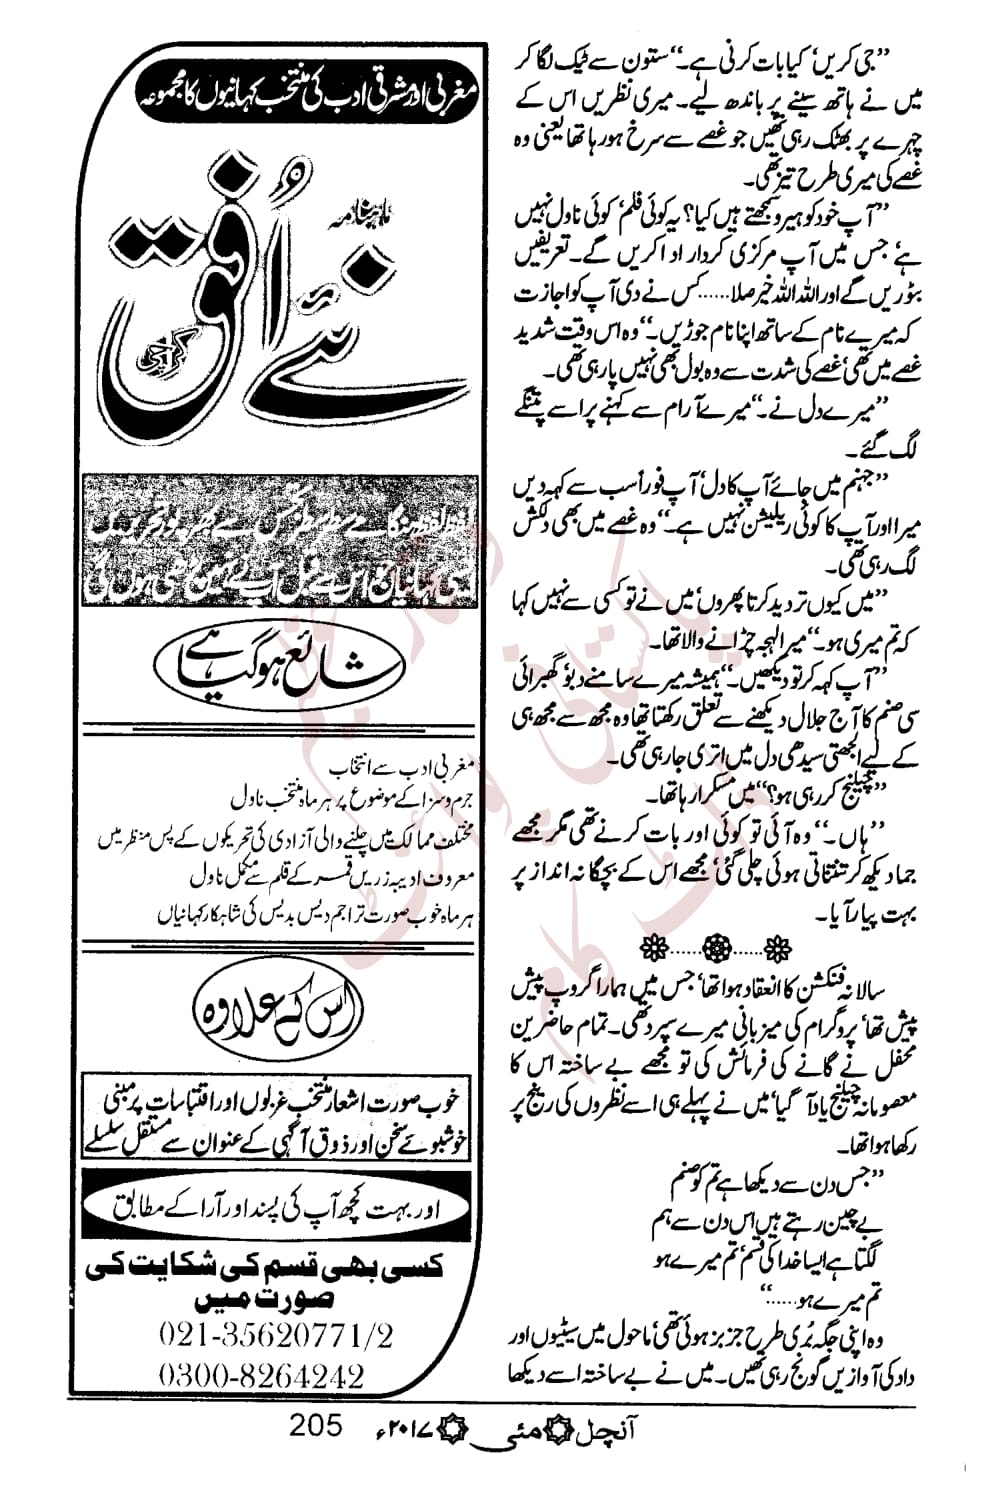 ”جی کریں‘ کیا بات کرنی ہے۔“ ستون سے ٹیک لگا کر
میں نے ہاتھ سینے پر باندھ لیے۔ میری نظریں اس کے
چہرے پر بھٹک رہی تھیں جو غصے سے سرخ ہو رہا تھا یعنی وہ
غصے کی میری طرح تیز تھی۔
”آپ خود کو ہیرو سمجھتے ہیں کیا؟ یہ کوئی فلم‘ کوئی ناول نہیں
ہے‘ جس میں آپ مرکزی کردار ادا کریں گے۔ تعریفیں
بٹوریں گے اور اللہ اللہ خیر صلا...... کس نے دی آپ کو اجازت
کہ میرے نام کے ساتھ اپنا نام جوڑیں۔“ وہ اس وقت شدید
غصے میں تھی‘ غصے کی شدت سے وہ بول بھی نہیں پا رہی تھی۔
”میرے دل نے۔“ میرے آرام سے کہنے پر اسے پتنگے
لگ گئے۔
”جہنم میں جائے آپ کا دل‘ آپ فوراً سب سے کہہ دیں
میرا اور آپ کا کوئی ریلیشن نہیں ہے۔“ وہ غصے میں بھی دلکش
لگ رہی تھی۔
”میں کیوں تردید کرتا پھروں‘ میں نے تو کسی سے نہیں کہا
کہ تم میری ہو۔“ میرا لہجہ چڑانے والا تھا۔
”آپ کہہ کر تو دیکھیں۔“ ہمیشہ میرے سامنے دبو‘ گھبرائی
سی صنم کا آج جلال دیکھنے سے تعلق رکھتا تھا وہ مجھ سے مجھ ہی
کے لیے الجھتی سیدھی دل میں اتری جا رہی تھی۔
”چیلنج کر رہی ہو؟“ میں مسکرا رہا تھا۔
”ہاں۔“ وہ آئی تو کوئی اور بات کرنے تھی مگر مجھے
جما دیکھ کر تنتناتی ہوئی چلی گئی‘ مجھے اس کے بچگانہ انداز پر
بہت پیار آیا۔
سالانہ فنکشن کا انعقاد ہوا تھا‘ جس میں ہمارا گروپ پیش
پیش تھا‘ پروگرام کی میزبانی میرے سپرد تھی۔ تمام حاضرین
محفل نے گانے کی فرمائش کی تو مجھے بے ساختہ اس کا
معصومانہ چیلنج یاد آ گیا‘ میں نے پہلے ہی اسے نظروں کی رینج پر
رکھا ہوا تھا۔
”جس دن سے دیکھا ہے تم کو صنم
بے چین رہتے ہیں اس دن سے ہم
لگتا ہے ایسا خدا کی قسم‘ تم میرے ہو
تم میرے ہو......“
وہ اپنی جگہ بُری طرح جزبز ہوئی تھی‘ ماحول میں سیٹیوں اور
داد کی آوازیں گونج رہی تھیں۔ میں نے بے ساختہ اسے دیکھا
مغربی اور مشرقی ادب کی منتخب کہانیوں کا مجموعہ
ماہنامہ
نئے اُفق
کراچی
شائع ہو گیا ہے
مغربی ادب سے انتخاب
جرم و سزا کے موضوع پر ہر ماہ منتخب ناول
مختلف ممالک میں چلنے والی آزادی کی تحریکوں کے پس منظر میں
معروف ادیبہ زریں قمر کے قلم سے مکمل ناول
ہر ماہ خوب صورت تراجم دیس بدیس کی شاہکار کہانیاں
اس کے علاوہ
خوب صورت اشعار منتخب غزلوں اور اقتباسات پر مبنی
خوشبوئے سخن اور ذوق آگہی کے عنوان سے مستقل سلسلے
اور بہت کچھ آپ کی پسند اور آرا کے مطابق
کسی بھی قسم کی شکایت کی
صورت میں
021-35620771/2
0300-8264242
آنچل مئی ۲۰۱۷ء 205